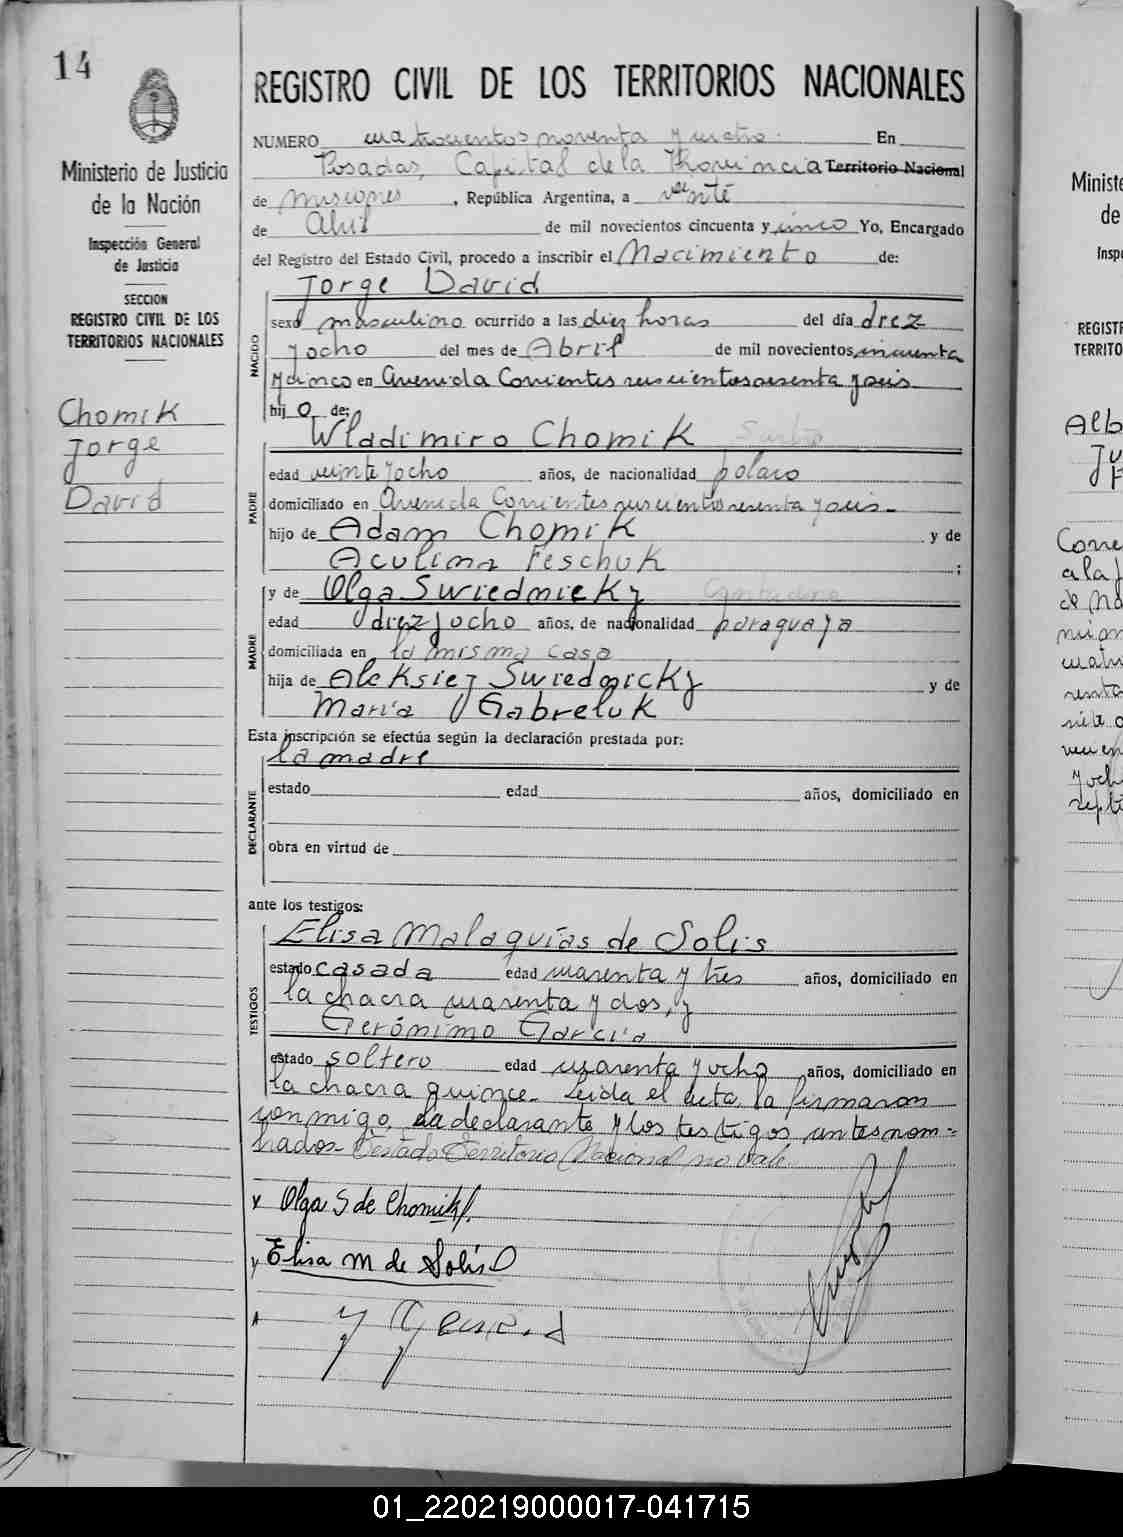 14
Ministerio de Justicia
de la Nación
Inspección General
de Justicia
SECCION
REGISTRO CIVIL DE LOS
TERRITORIOS NACIONALES
Chomik
Jorge
David
REGISTRO CIVIL DE LOS TERRITORIOS NACIONALES
NUMERO cuatrocientos noventa y cuatro. En
Posadas, Capital de la Provincia Territorio Nacional
de Misiones, República Argentina, a veinte
de Abril de mil novecientos cincuenta y cinco Yo, Encargado
del Registro del Estado Civil, procedo a inscribir el Nacimiento de:
Jorge David
NACIDO
sexo masculino ocurrido a las diez horas del día diez
y ocho del mes de Abril de mil novecientos cincuenta
y cinco en Avenida Corrientes seiscientos sesenta y seis
hijo de:
Wladimiro Chomik
PADRE
edad veinte y ocho años, de nacionalidad polaco
domiciliado en Avenida Corrientes seiscientos sesenta y seis-
hijo de Adam Chomik y de
Aculina Feschuk ;
y de Olga Swiednicky
MADRE
edad diez y ocho años, de nacionalidad paraguaya
domiciliada en la misma casa
hija de Aleksiez Swiednicky y de
María Gabreluk
Esta inscripción se efectúa según la declaración prestada por:
la madre
DECLARANTE
estado edad años, domiciliado en
obra en virtud de
ante los testigos:
Elisa Malaquías de Solis
TESTIGOS
estado casada edad cuarenta y tres años, domiciliado en
la chacra cuarenta y dos, y
Gerónimo García
estado soltero edad cuarenta y ocho años, domiciliado en
la chacra quince- Leida el acta, la firmaron
conmigo, la declarante y los testigos antes nom-
brados- Testado Territorio Nacional no vale.
x Olga S de Chomik
Elisa M de Solís
Ministe
de
Inspe
REGISTR
TERRITO
Alb
01_220219000017-041715